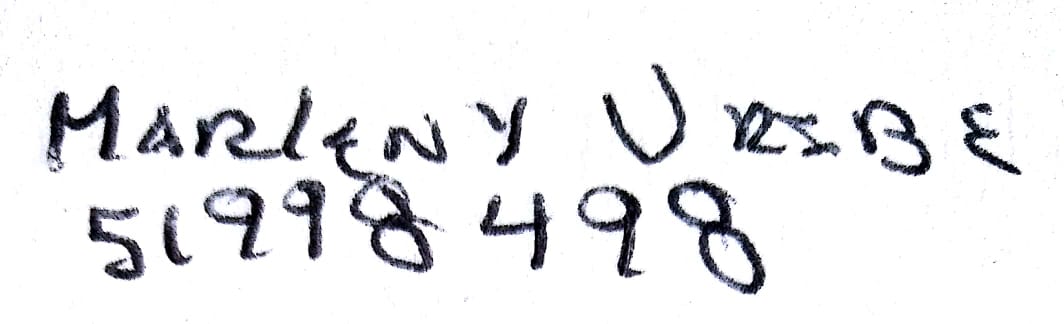 MARLENY URIBE
51998498